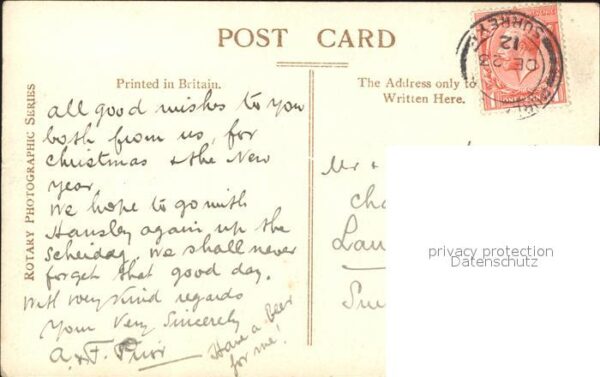 POST CARD
SURREY
12
DE 23
Printed in Britain.
The Address only to
Written Here.
ROTARY PHOTOGRAPHIC SERIES
all good wishes to you
both from us, for
Christmas & the New
Year.
We hope to go with
Hansley again up the
Scheidag, we shall never
forget that good day.
With very kind regards
Your Very Sincerely
A. & F. Prior
Have a Beer
for me!
Mr &
Lau
privacy protection
Datenschutz